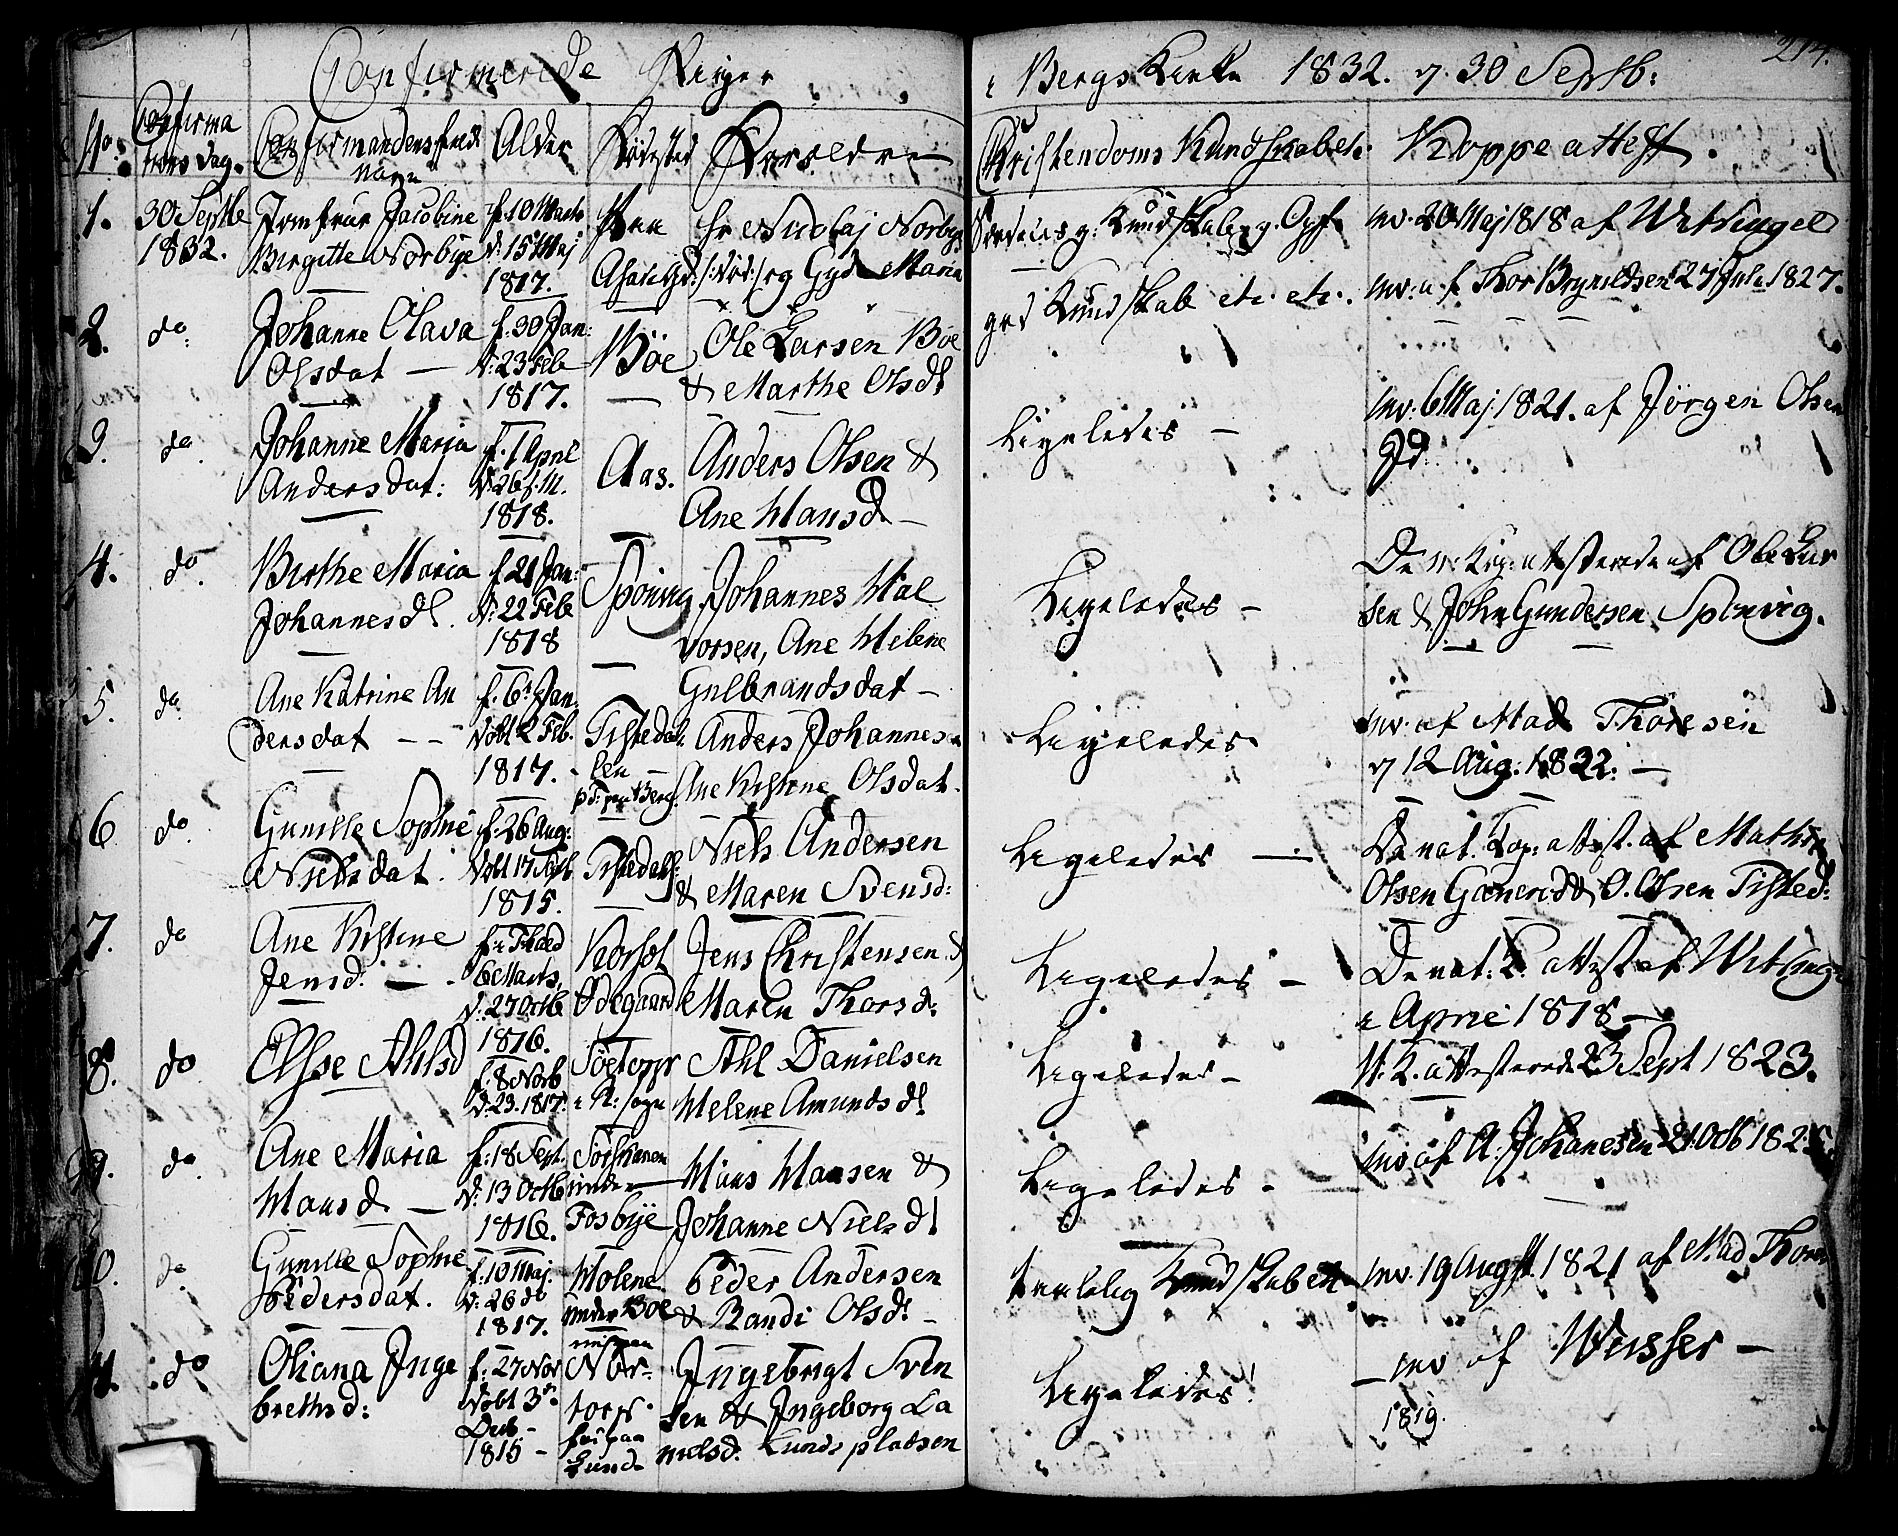 Confirmerede Piger
i Bergs Kirke 1832. d. 30 Septb:
214.
No:
Confirma
tions dag.
Confirmandens fulde
Navn
Alder
Födested
Forældre
Christendoms Kundskaber
Koppe attest.
1.
30 Septbr
1832.
Jomfrue Jacobine
Birgitte Norbye
f. 10 Marts
d. 15 Maj
1817.
Paa
Hr Nicolaj Norbye
/:död:/ og Maria
Særdeles g. Kundskab g. Opf.
inv. 20 Maj 1818 af Witzingel
2.
do:
Johanne Olava
Olsdat —
f. 30 Jan:
d: 23 Feb
1817.
Böe
—
Ole Larsen Böe
& Marthe Olsd
god Kundskab etc. etc.
inv. af Thor Brynildsen 27 Jule 1827.
3.
do.
Johanne Maria
Andersdat:
f. 1 April
d. 26 f. M.
1818.
Aas.
Anders Olsen &
Ane Hansd. —
Ligeledes —
inv. 6 Maj 1821. af Jörgen Olsen
4.
do.
Birthe Maria
Johannesd.
f. 21 Jan:
d: 22 Feb
1818
Johannes Hal
vorsen, Ane Helene
Gulbrandsdat —
Ligeledes —
De n: Kop: attesterede af Ole Lar
sen & John Gundersen Spinvig.
5.
do.
Ane Katrine An
dersdat — —
f. 6 Jan.
döbt 2 Feb.
1817.
Tistedal
len
paa Berg
Anders Johannes
Ane Kistine Olsdat.
Ligeledes
inv. af Mad Thoresen
d 12 Aug: 1822. —
6
do
Gunille Sophie
Nielsdat.
f. 26 Aug:
döbt 17 Sept
1815.
Tistedal
Niels Andersen
& Maren Svensd:
Ligeledes —
De nat. Kop: attest. af Mathis
Olsen & O. Olsen Tisted:
7.
do
Ane Kistine
Jensd: —
6 Marts,
d. 27 Octb
1816.
Ödegaard
Jens Christensen &
Maren Thorsd.
Ligeledes —
De nat: K. attest af Witzing
i April 1818 —
8.
do
Elsse Ahlsd
f: 8 Novb
d. 23. 1817.
i R: sogn
Ahl Danielsen
Helene Amundsd
Ligeledes —
N. K. attesterede 23 Sept 1823.
9.
do
Ane Maria
Hansd —
f: 18 Sept.
d: 13 Octb
1816.
under —
Fosbye
Hans Hansen &
Johanne Nielsd
Ligeledes —
inv af A. Johanesen 21 Octb
10.
do
Gunille Sophie
Pedersdat.
f. 10 Maj.
d: 26 do
1817.
Holene
under Böe
Peder Andersen
& Randi Olsd. —
taalelig Kundskab etc
inv. 19 Augst. 1821 af Mad Thor
11.
do
Oliana Inge
brethsd:
f: 27 Nov
döbt 3
Decb. —
1815 —
Nor-
torp.
paa
Lund
Ingebrigt Sven
sen & Ingeborg La
nielsd. Lunds pladsen
Ligeledes
— inv af Wusser —
1819.